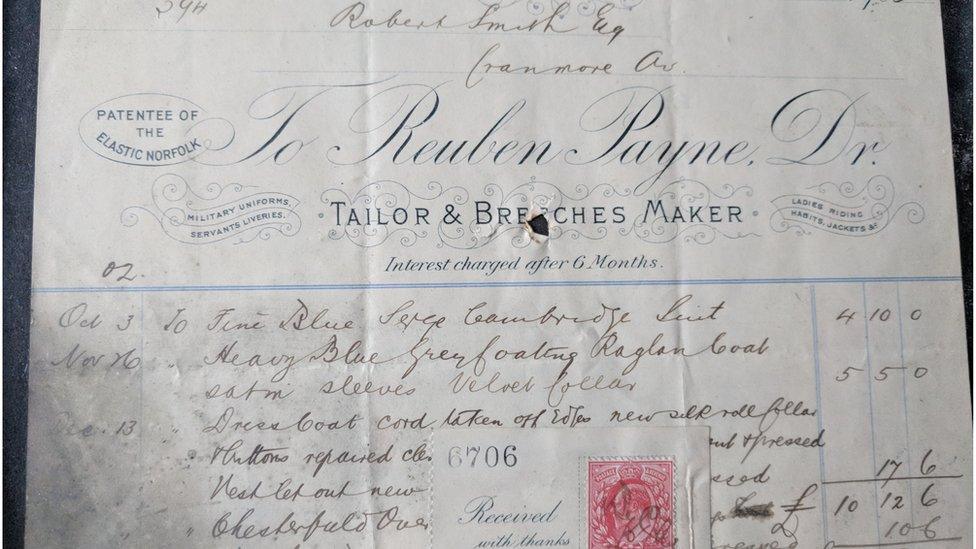 Robert Smith Esq
Cranmore Av.
PATENTEE OF
THE
ELASTIC NORFOLK
To Reuben Payne, Dr.
MILITARY UNIFORMS,
SERVANTS LIVERIES.
TAILOR & BREECHES MAKER
LADIES RIDING
HABITS, JACKETS &c
Interest charged after 6 Months.
02.
Oct 3 To Fine Blue Serge Cambridge Suit 4 10 0
Nov 26 " Heavy Blue Grey Coating Raglan Coat
satin sleeves Velvet Collar 5 5 0
Dec. 13 " Dress Coat cord taken off Edges new silk roll Collar
& buttons repaired & pressed
6706
Vest let out new 17 6
£ 10 12 6
" " Chesterfield Over 10 6
Received
with thanks